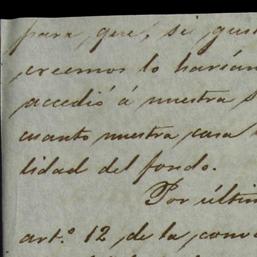 para que, si gus
creemos lo harían
accedió á nuestra s
cuanto nuestra casa
lidad del fondo.
Por últim
art.º 12 de la conv